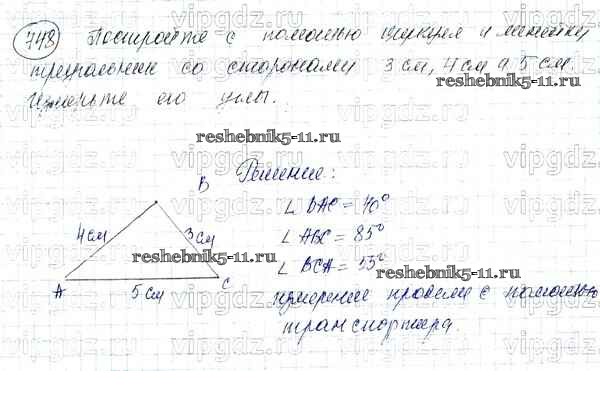 748 Постройте с помощью циркуля и линейки
треугольник со сторонами 3 см, 4 см и 5 см.
Измерьте его углы.
reshebnik5-11.ru
B Решение:
∠ BAC = 40°
4 см 3 см ∠ ABC = 85°
reshebnik5-11.ru ∠ BCA = 55°
reshebnik5-11.ru
A 5 см C измерение провели с помощью
транспортира.
vipgdz.com